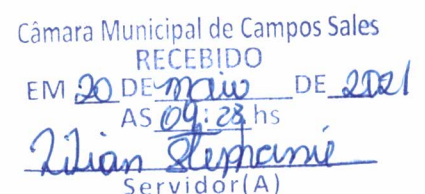 Câmara Municipal de Campos Sales
RECEBIDO
EM 20 DE maio DE 2021
AS 09:28 hs
Lilian Stephanie
Servidor(A)